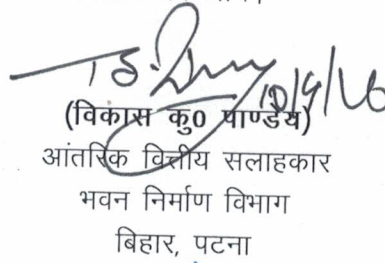 (विकास कु0 पाण्डेय)
आंतरिक वित्तीय सलाहकार
भवन निर्माण विभाग
बिहार, पटना